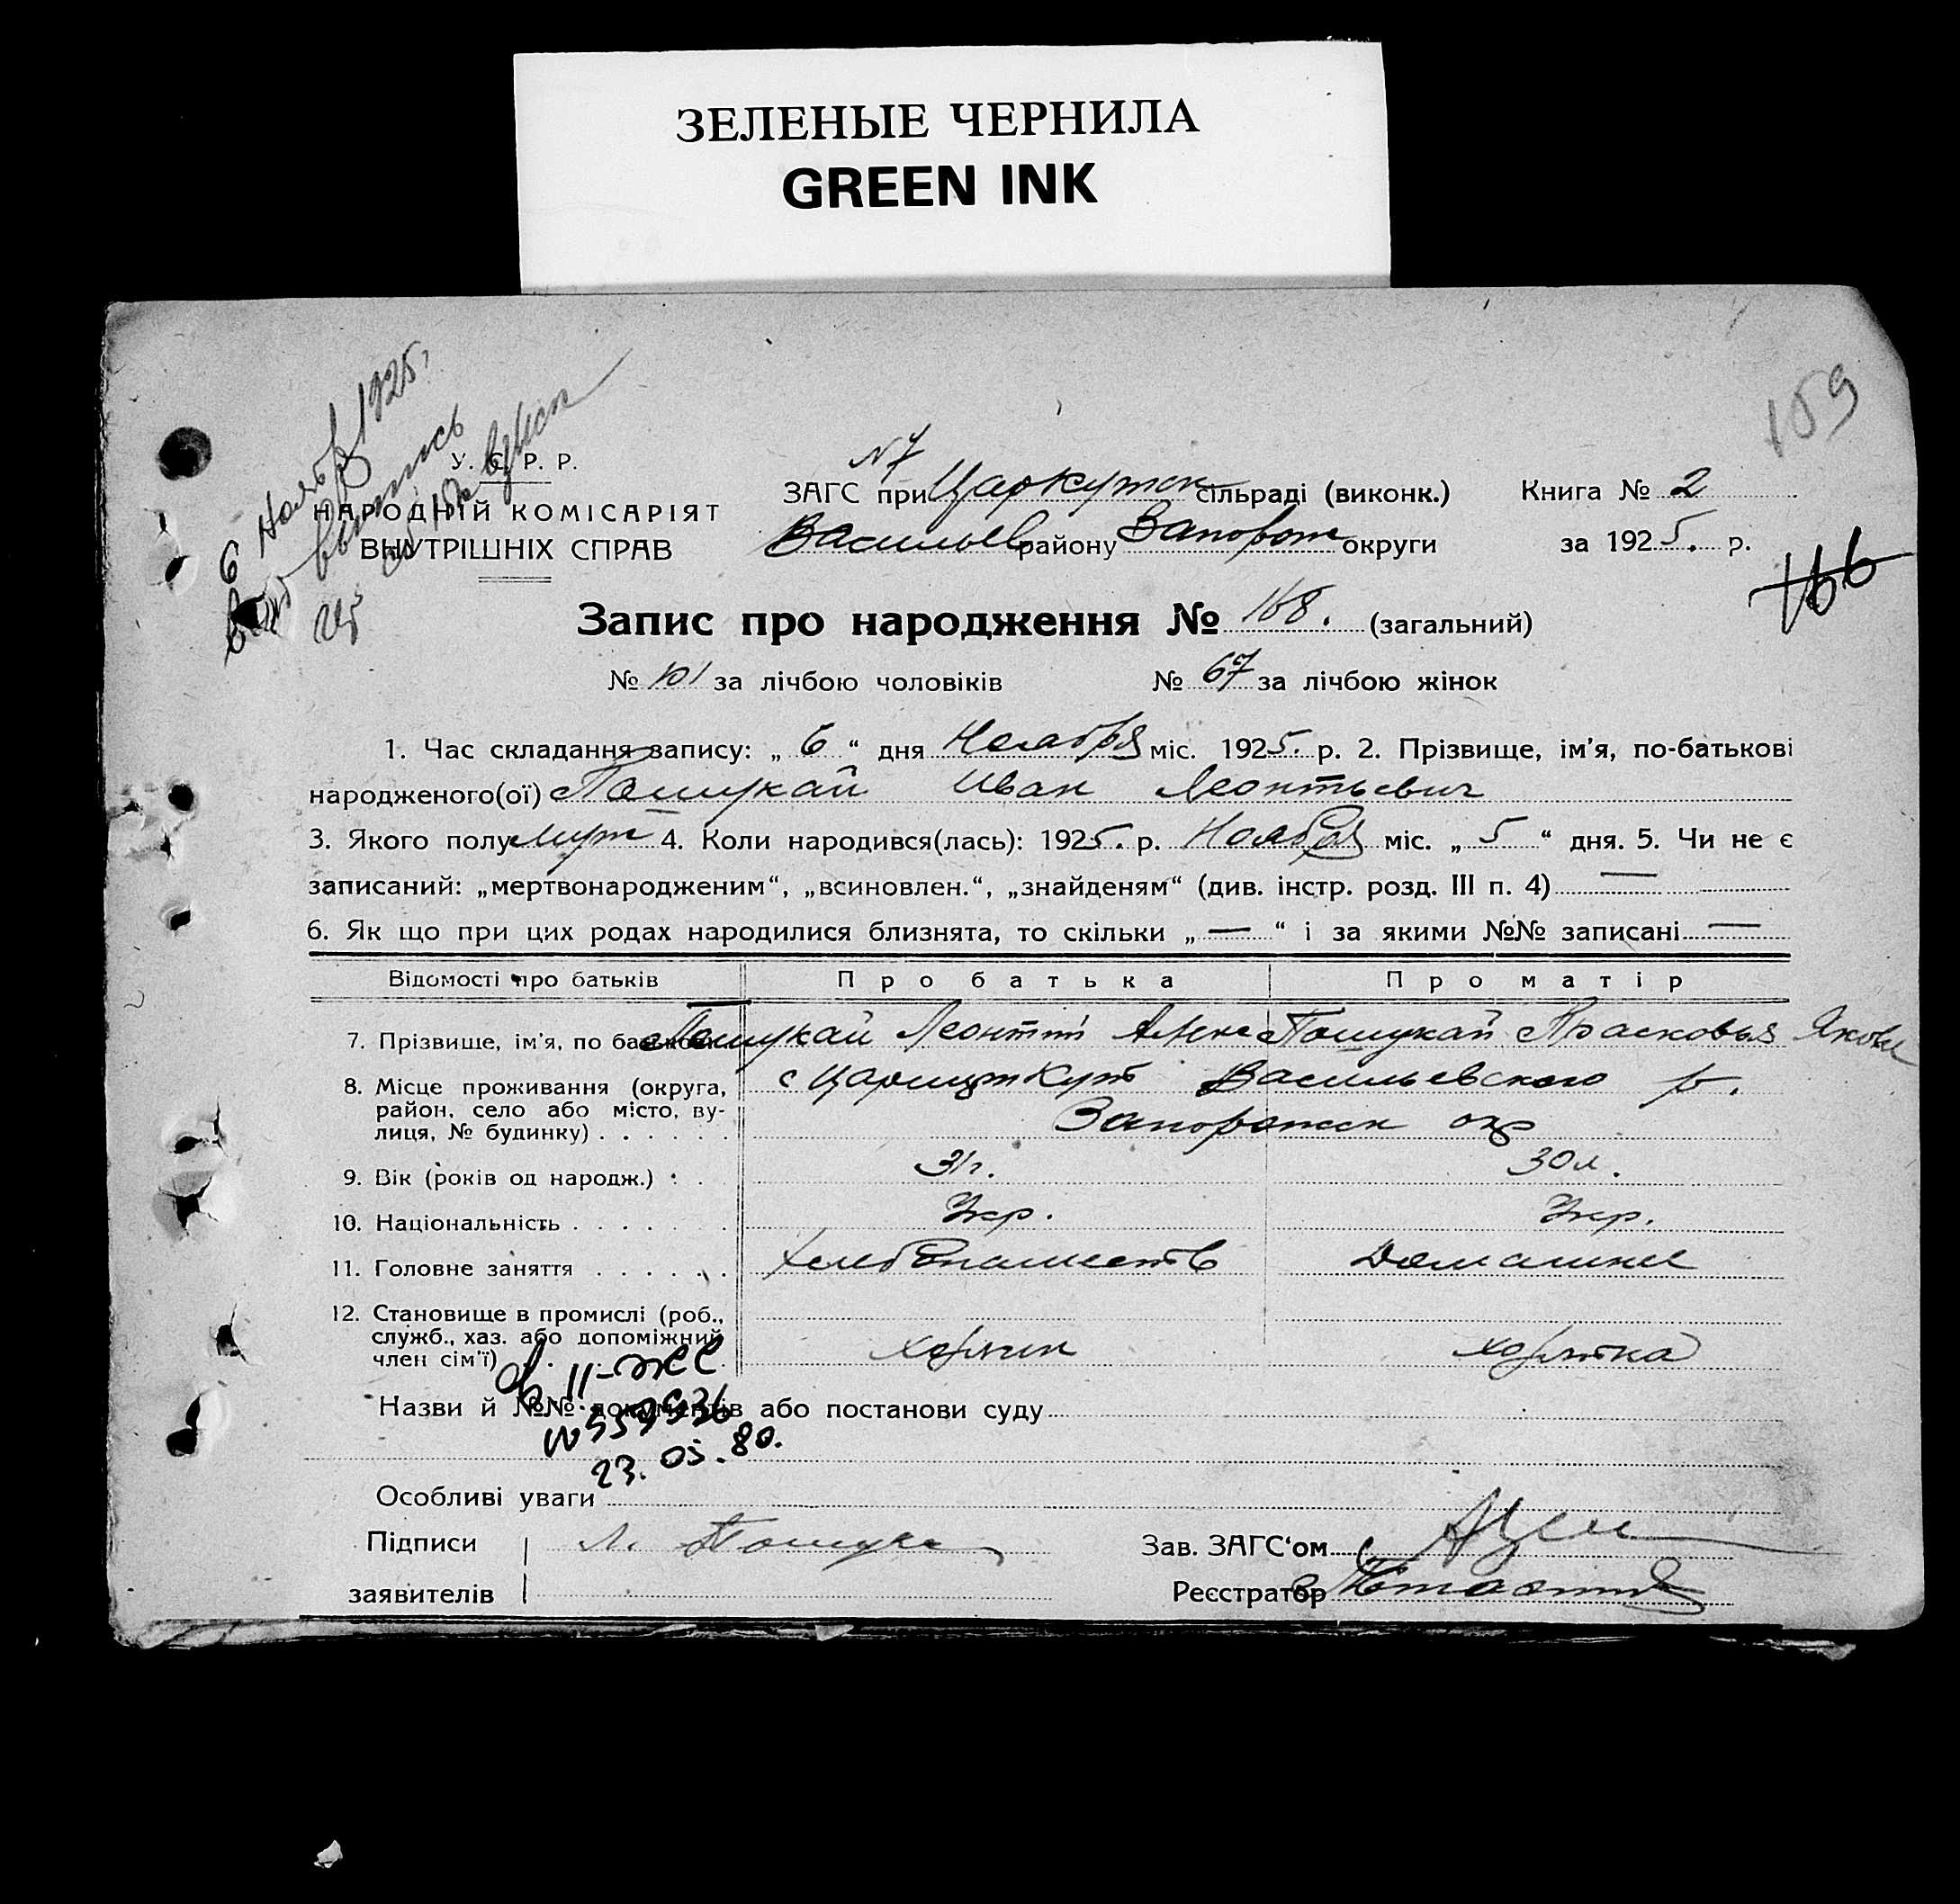 ЗЕЛЕНЫЕ ЧЕРНИЛА
GREEN INK
159
6 Ноябр 1925,
выпись
У. С. Р. Р.
НАРОДНІЙ КОМІСАРІЯТ
ВНУТРІШНІХ СПРАВ
N7
ЗАГС при Царкутск сільраді (виконк.) Книга № 2
Васильев району Запорож округи за 1925. р.
166
Запис про народження № 168. (загальний)
№ 101 за лічбою чоловіків № 67 за лічбою жінок
1. Час складання запису: „ 6 “ дня Ноября міс. 1925. р. 2. Прізвище, ім'я, по-батькові
народженого(ої) Пошукай Иван Леонтьевич
3. Якого полу муж 4. Коли народився(лась): 1925. р. Ноября міс. „ 5 “ дня. 5. Чи не є
записаний: „мертвонародженим“, „всиновлен.“, „знайденям“ (див. інстр. розд. III п. 4) —
6. Як що при цих родах народилися близнята, то скільки „ — “ і за якими №№ записані —
Відомості про батьків Про батька Про матір
7. Прізвище, ім'я, по батькові Пошукай Леонтій Алекс Пошукай Прасковья Яковл
8. Місце проживання (округа, с Царицынкут Васильевского р.
район, село або місто, ву-
лиця, № будинку) . . . . . . Запорожск окр
9. Вік (років од народж.) . . 31г. 30л.
10. Національність . . . . . . Укр. Укр.
11. Головне заняття . . . . . . Хлебопашеств Домашние
12. Становище в промислі (роб.,
служб., хаз. або допоміжний
член сім'ї) . . . хозяин хозяйка
II-ЖС
Назви й №№ документів або постанови суду
N 559936
23.05.80.
Особливі уваги
Підписи Л. Пошука Зав. ЗАГС‘ом
заявителів Реєстратор